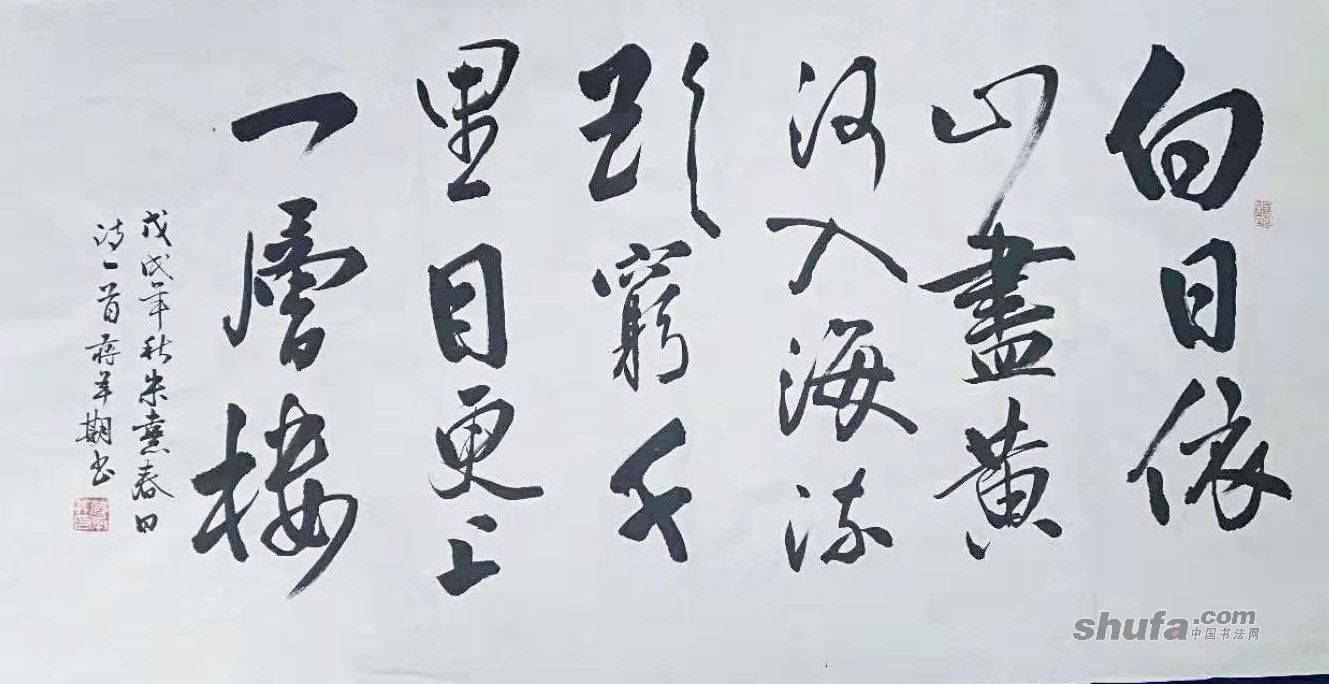 白日依
山盡黃
河入海流
欲窮千
里目更上
一層樓
戊戌年秋朱熹春日
詩一首蔣羊期书
shufa.com
中国书法网